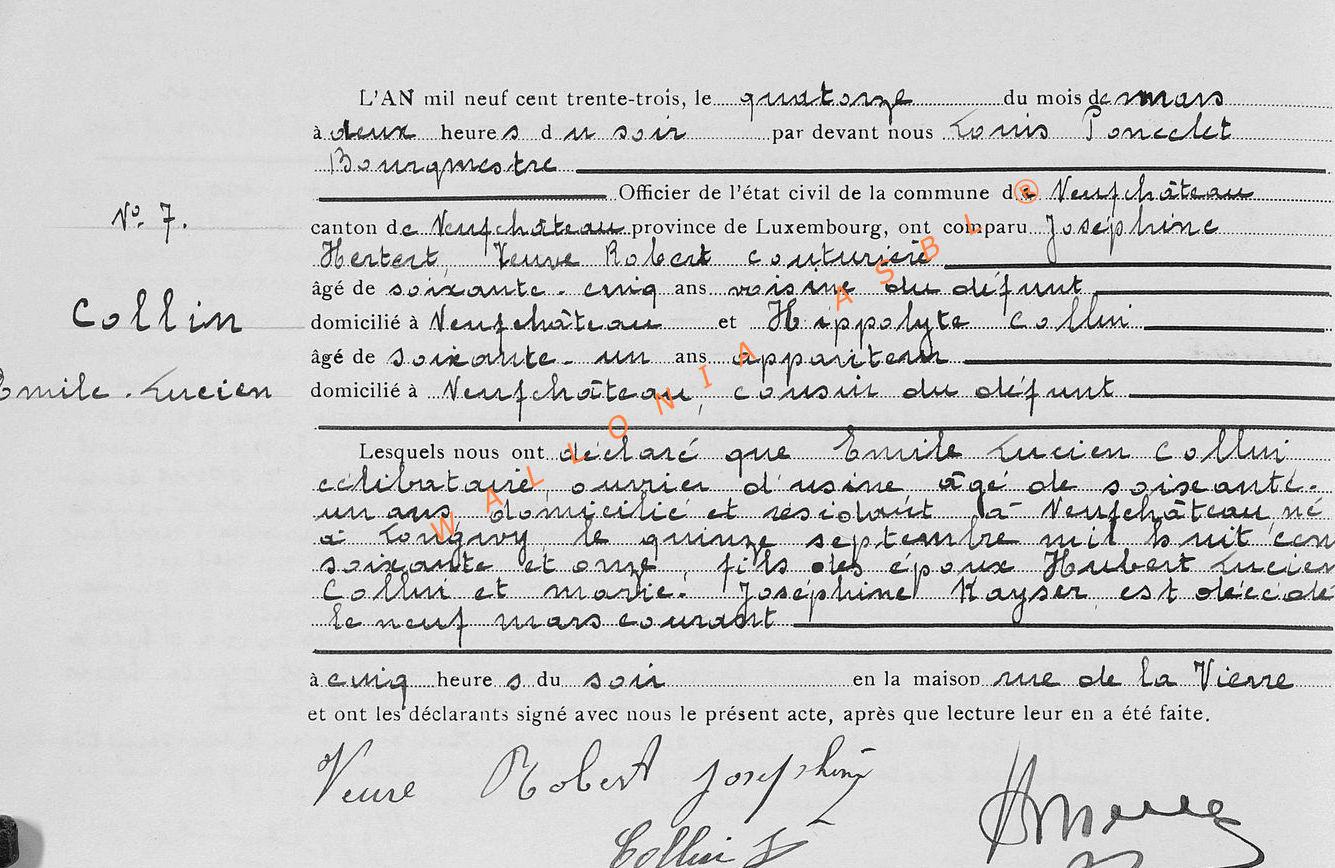 L'AN mil neuf cent trente-trois, le quatorze du mois de mars
à deux heures du soir par devant nous Louis Poncelet
Bourgmestre
Officier de l'état civil de la commune de Neufchâteau
N° 7.
canton de Neufchâteau province de Luxembourg, ont comparu Joséphine
Herbert, Veuve Robert couturière
âgé de soixante-cinq ans voisine du défunt
Collin
domicilié à Neufchâteau et Hippolyte Collin
âgé de soixante-un ans appariteur
Emile-Lucien
domicilié à Neufchâteau, cousin du défunt
Lesquels nous ont déclaré que Emile Lucien Collin
célibataire, ouvrier d'usine âgé de soixante-
un ans, domicilié et résidant à Neufchâteau, né
à Longwy le quinze septembre mil huit cen
soixante et onze, fils des époux Hubert Lucien
Collin et Marie-Joséphine Kayser, est décédé
le neuf mars courant
à cinq heures du soir en la maison rue de la Vierre
et ont les déclarants signé avec nous le présent acte, après que lecture leur en a été faite.
Veuve Robert Joséphine
Collin
WALLONIA ASBL ®